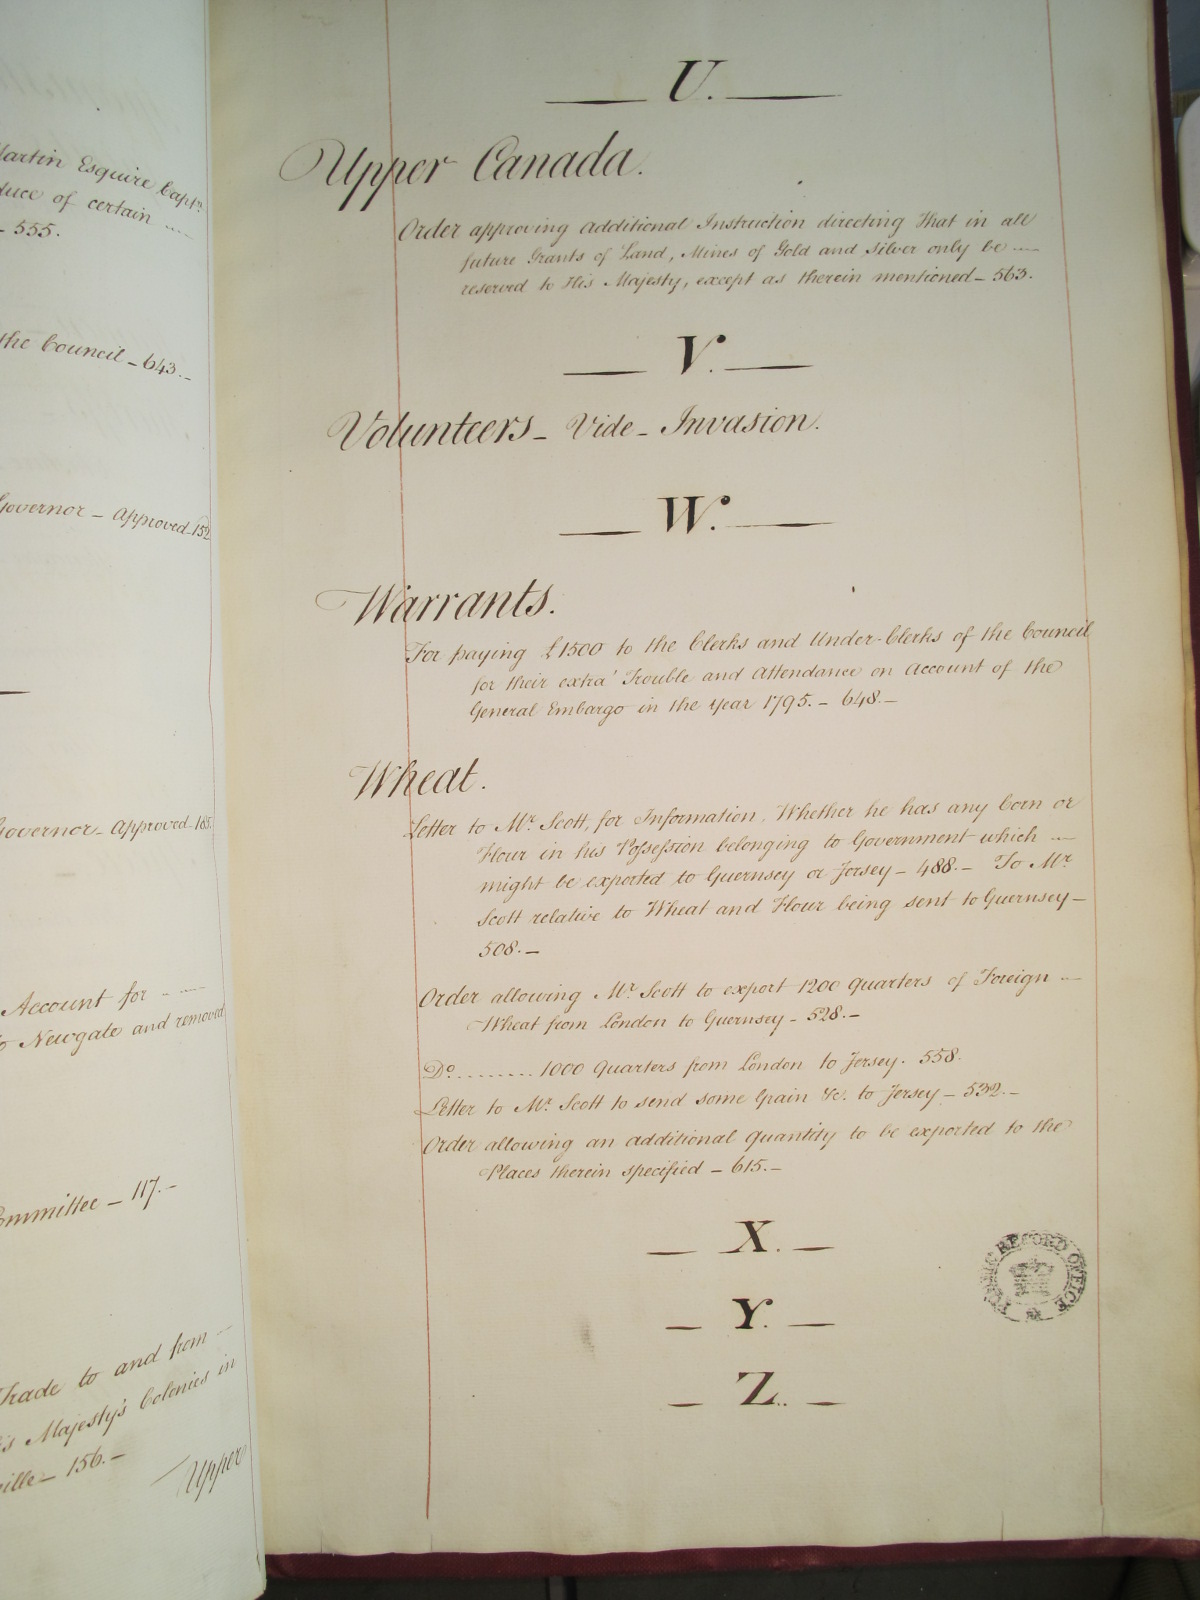 Martin Esquire Capt.n
duce of certain
- 555.
the Council - 643.-
Governor - Approved 152
Governor - Approved. 185.
Account for
to Newgate and removed
Committee - 117.-
Trade to and from
is Majesty's Colonies in
ville - 156.-
Upper
U.
Upper Canada.
Order approving Additional Instruction directing that in all
future Grants of Land, Mines of Gold and Silver only be
reserved to His Majesty, except as therein mentioned - 563.
V.
Volunteers - Vide - Invasion.
W.
Warrants.
For paying £1500 to the Clerks and Under-Clerks of the Council
for their extra' Trouble and Attendance on Account of the
General Embargo in the year 1795. - 648.-
Wheat.
Letter to Mr. Scott, for Information, Whether he has any Corn or
Flour in his Possession belonging to Government which
might be exported to Guernsey or Jersey - 488. - To Mr.
Scott relative to Wheat and Flour being sent to Guernsey -
508.-
Order allowing Mr. Scott to export 1200 quarters of Foreign
Wheat from London to Guernsey - 528.-
Do. ......... 1000 Quarters from London to Jersey. 558.
Letter to Mr. Scott to send some Grain &c. to Jersey - 532.-
Order allowing an additional quantity to be exported to the
Places therein specified - 615.-
X.
PUBLIC RECORD OFFICE
Y.
Z.